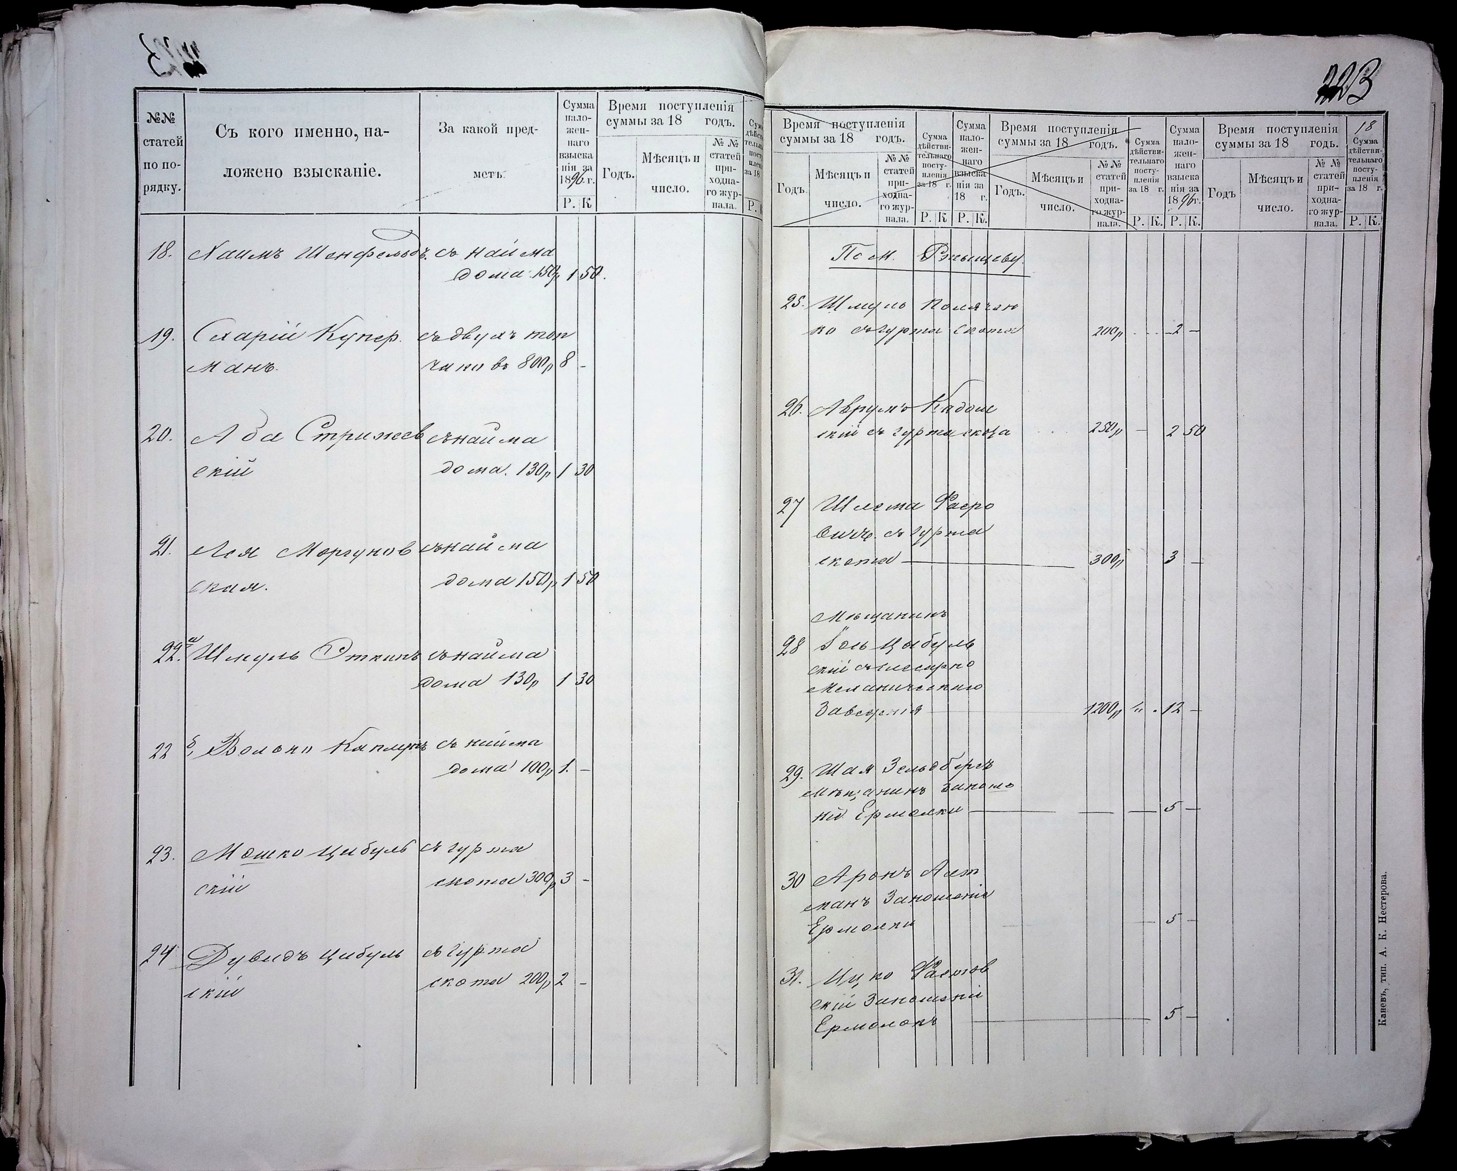 223
№№ статей по порядку.
Съ кого именно, наложено взысканіе.
За какой предметъ.
Сумма наложеннаго взысканія за 1896 г.
Р. К
Время поступленія суммы за 18 годъ.
Годъ.
Мѣсяцъ и число.
№№ статей приходнаго журнала.
18. Хаимъ Шенфельдъ съ найма
дома 150р 1 50.
19. Сахрій Купер съ двухъ топ
манъ. чаковъ 800р 8 -
20. Аба Стрижев съ найма
скій дома. 130р 1 30
21. Лея Моргунов съ найма
ская. дома 150р 1 50
22а. Шмуль Эткинъ съ найма
дома 130р 1 30
22 б, Волько Каплунъ съ найма
дома 100р 1. -
23. Мошко Цибуль съ гурта
скій скота 300р 3 -
24 Дувидъ Цибуль съ гурта
скій скота 200р 2 -
Время поступленія суммы за 18 годъ.
Годъ.
Мѣсяцъ и число.
№№ статей приходнаго журнала.
Сумма дѣйствительнаго поступленія за 18 г.
Р. К
Сумма наложеннаго взысканія за 18 г.
Р. К.
Время поступленія суммы за 18 годъ.
Годъ.
Мѣсяцъ и число.
№№ статей приходнаго журнала.
Сумма дѣйствительнаго поступленія за 18 г.
Р. К.
Сумма наложеннаго взысканія за 1896 г.
Р. К.
Время поступленія суммы за 18 годъ.
Годъ
Мѣсяцъ и число.
№ № статей приходнаго журнала.
18
Сумма дѣйствительнаго поступленія за 18 г.
Р. К.
По м. Ржищеву
25. Шмуль Полячен
ко съ гурта скота 200р 2 -
26. Аврумъ Кадош
скій съ гурта скота 250р - 2 50
27 Шлема Фасро
вичъ съ гурта
скота 300р 3 -
Мѣщанинъ
28 Цибуль
скій съ слесарно
механическаго
Заведенія 1200р 12 -
29. Шая Зельдбергъ
мѣщанинъ за ноше
ніе Ермолки 5 -
30 Аронъ Алт
манъ За ношеніе
Ермолки 5 -
31. Ицко Фастов
скій За ношеніе
Ермолокъ 5 -
Каневъ, тип. А. К. Нестерова.